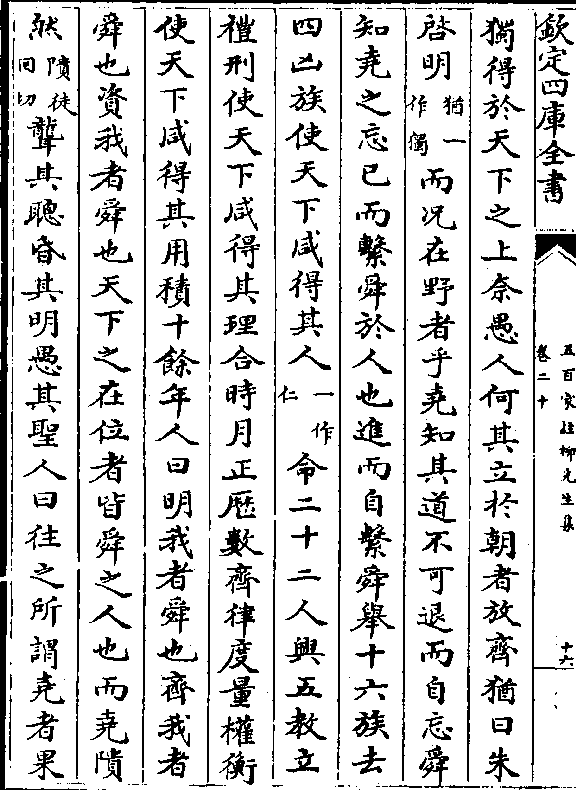 欽定四庫全書
五百家註柳先生集
卷二十
十六
獨得於天下之上奈愚人何其立於朝者放齊猶曰朱
啓明猶一作獨而况在野者乎堯知其道不可退而自忘舜
知堯之忘已而繫舜於人也進而自繫舜舉十六族去
四凶族使天下咸得其人一作仁命二十二人興五教立
禮刑使天下咸得其理合時月正厯數齊律度量權衡
使天下咸得其用積十餘年人曰明我者舜也齊我者
舜也資我者舜也天下之在位者皆舜之人也而堯隤
然隤徒回切聾其聰昏其明愚其聖人曰往之所謂堯者果